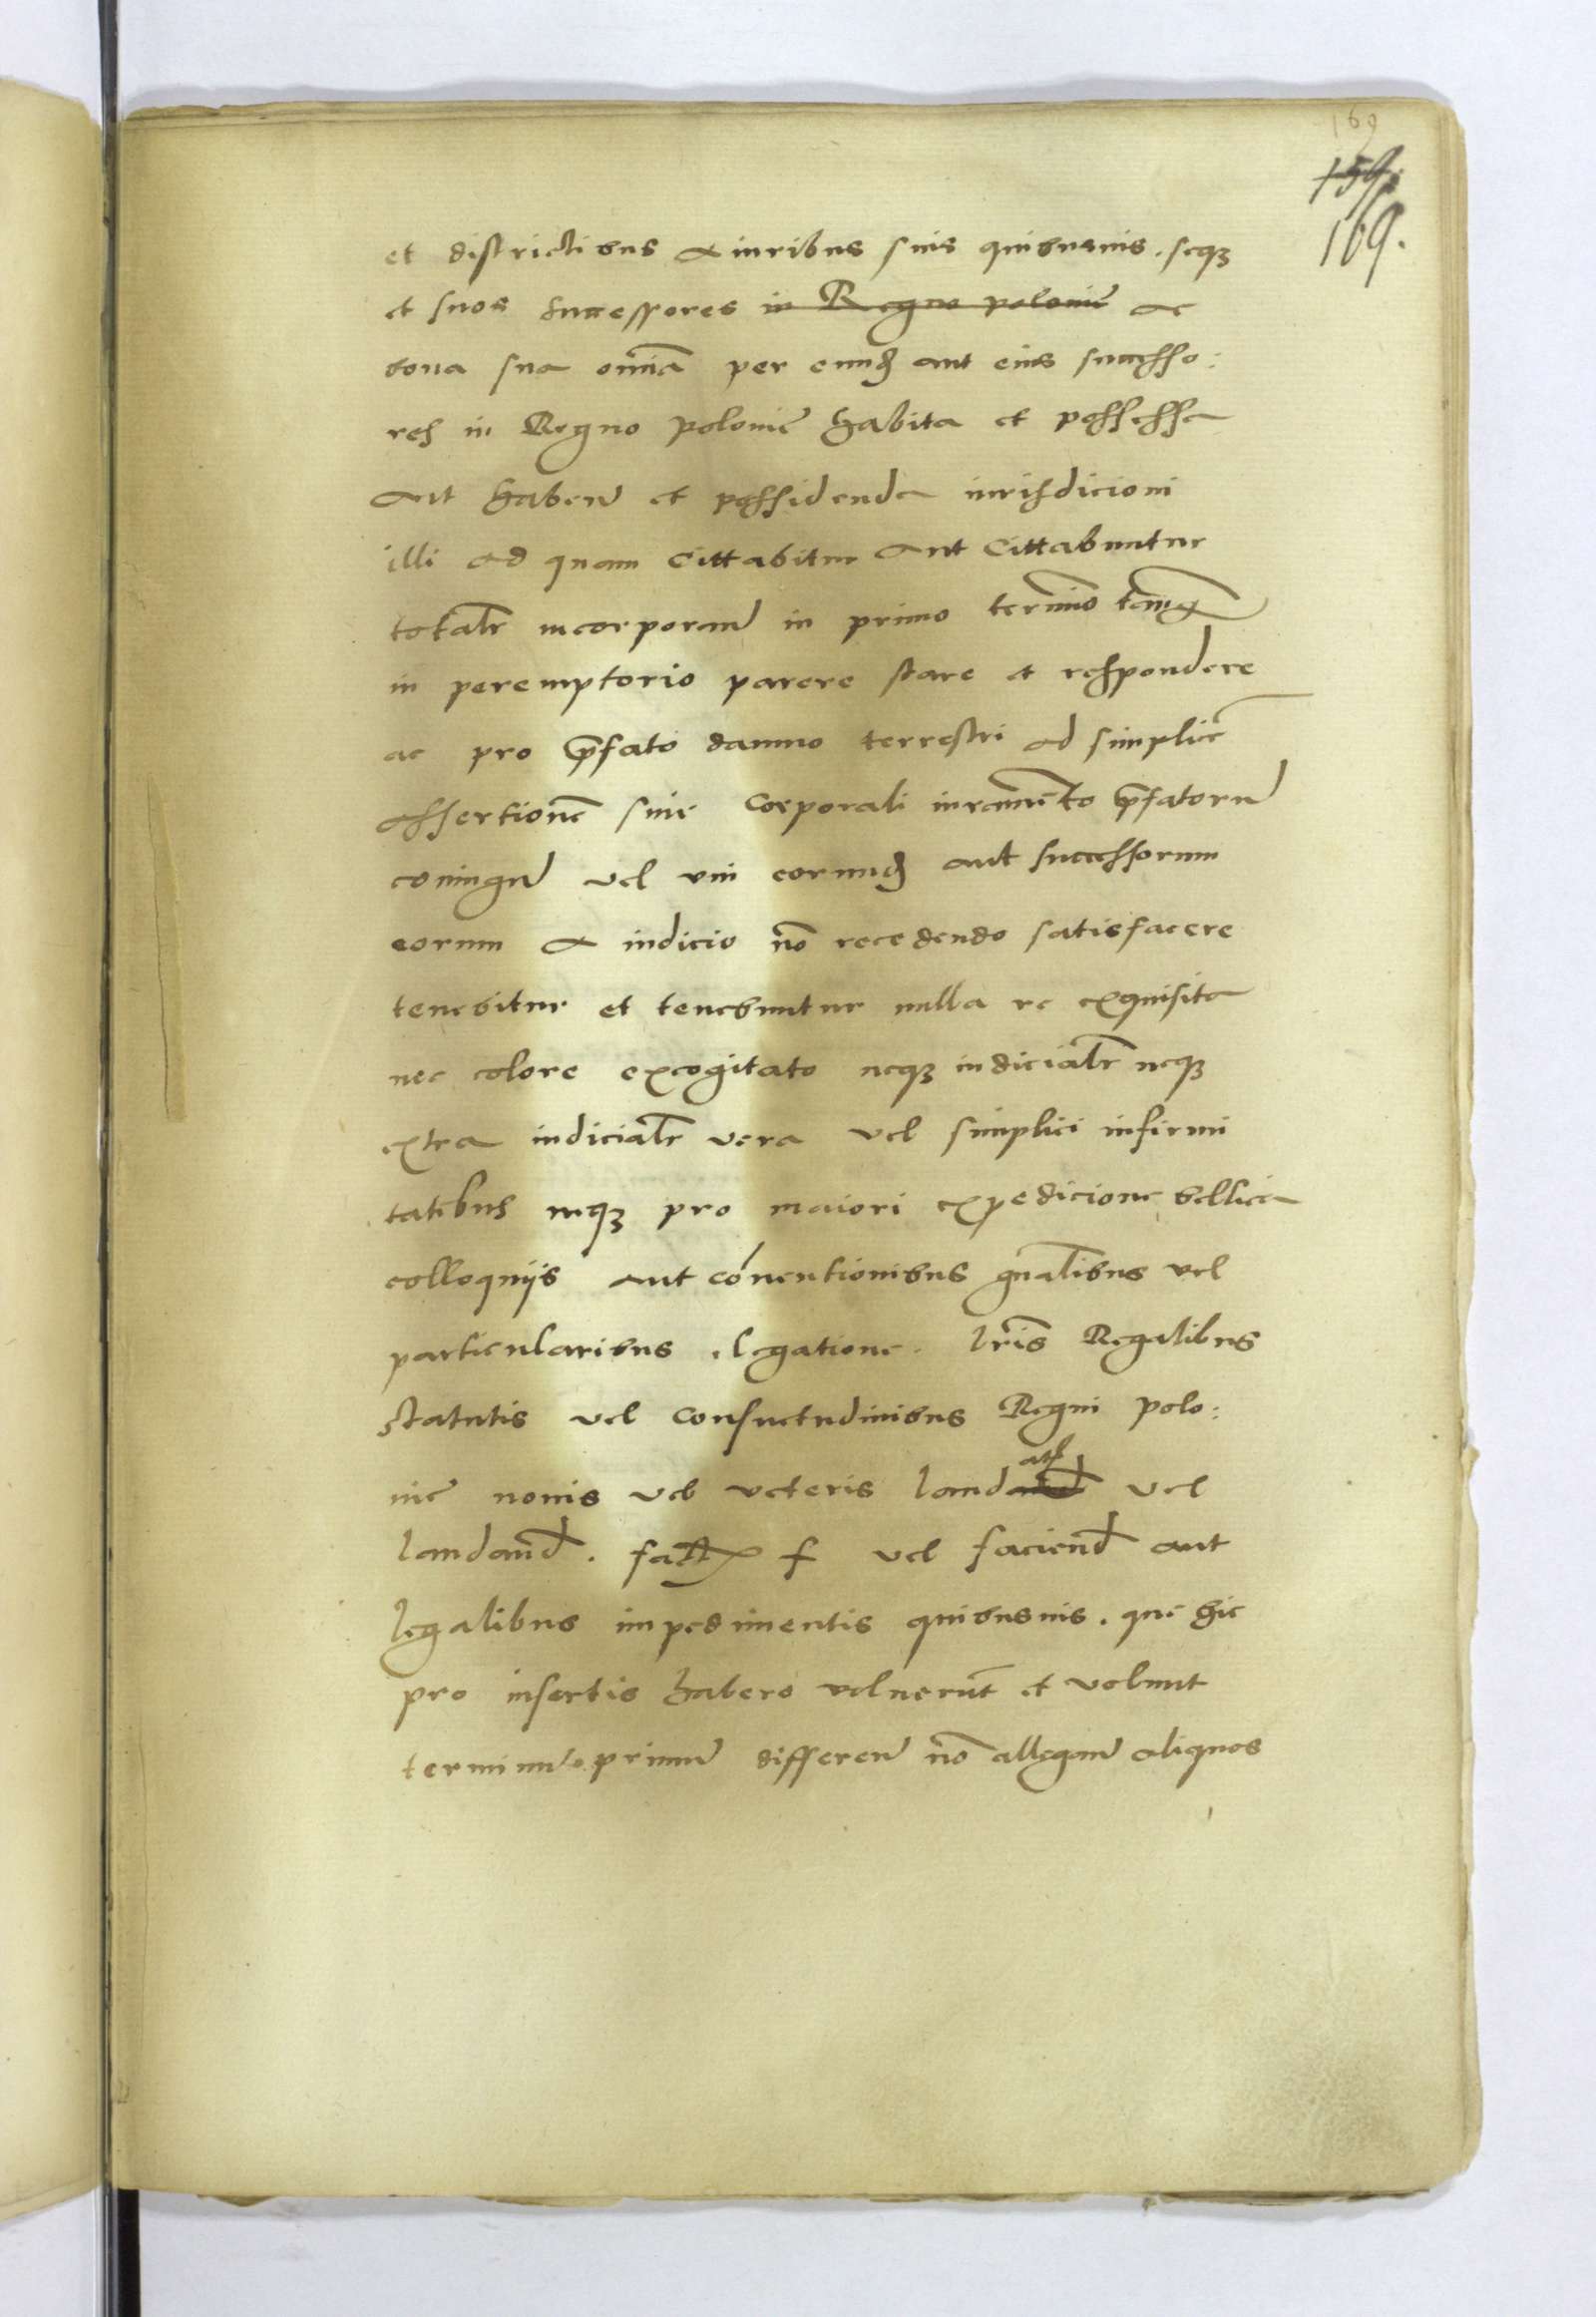 169
159.
169.
et districtibus & iuribus suis quibusuis. seqꝫ
et suos successores in Regno polonie ac
bona sua omnia per eundem aut eius successo:
res in Regno polonie habita et possessa
aut haben̄ et possidenda iurisdicioni
illi ad quam Cittabitur aut Cittabuntur
totalr̄ incorporan̄ in primo termio tamqȝ
in peremptorio parere stare et respondere
ac pro p̄fato damno terrestri ad simplicē
assertionē siue Corporali iuramēto p̄fatorum
coniugum vel vni eorundem aut successorum
eorum & iudicio nō recedendo satisfacere
tenebitur et tenebuntur nulla re exquisita
nec colore excogitato neqꝫ iudicialr̄ neqꝫ
extra iudicialr̄ vera vel simplici infirmi
tatibus neqꝫ pro maiori expedicione bellica
colloquijs aut cōuentionibus gn̄alibus vel
particularibus. legatione. lr̄is Regalibus
statutis vel consuetudinibus Regni polo:
nie nouis vel veteris laudat vel
laudand̄. fact f vel faciend̄ aut
legalibus impedimentis quibusuis. que hic
pro insertis habere voluerūt et volunt
terminum primum differen̄ nō allegan̄ aliquos